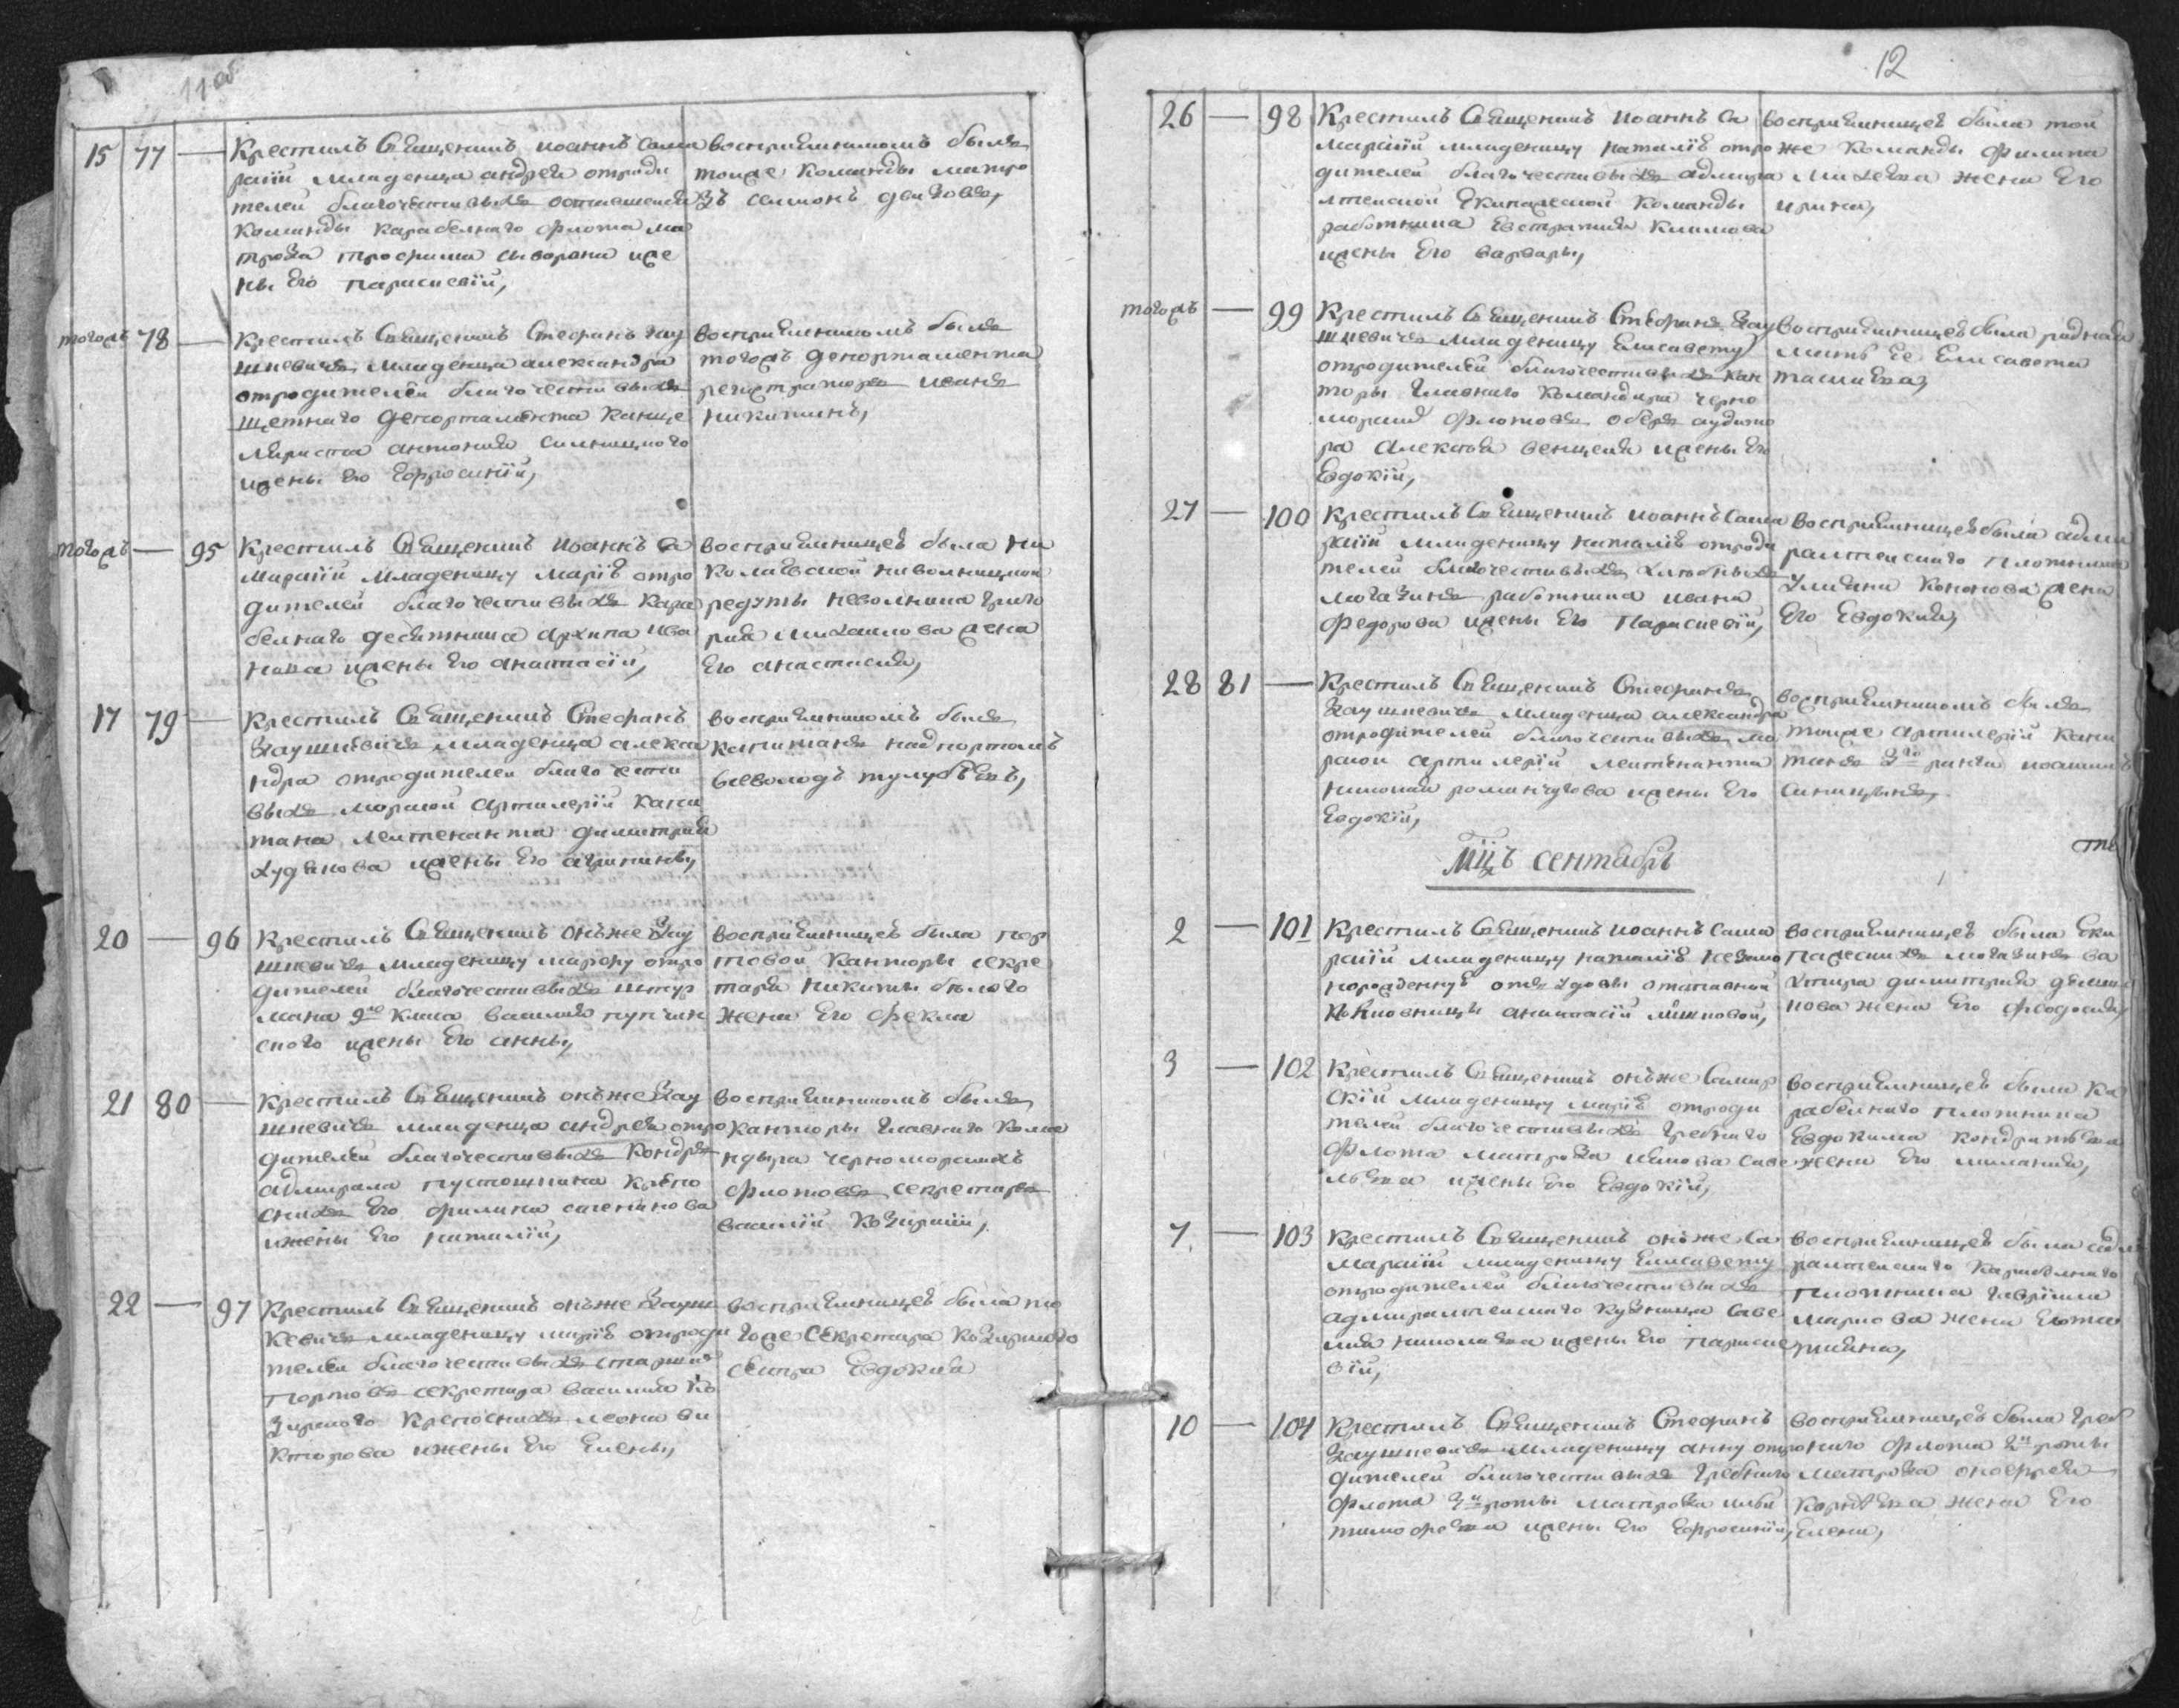 11 об
15 77 — Крестилъ Священникъ иоаннъ сама
рскій младенца андрея отроди
телей благочестивыхъ
команды карабелнаго флота ма
троза трофима сиворона иже
ны Его параскевіи,
воспріемникомъ былъ
тоиже команды матро
зъ семионъ
тогожъ 78 — Крестилъ Священникъ Стефанъ Зау
шкевичъ младенца александра
отродителей благочестивыхъ
щетнаго департамента канце
ляриста антония силницкого
ижены Его Ефросиніи,
воспріемникомъ былъ
тогожъ департамента
регистраторъ иванъ
никитинъ,
тогожъ — 95 Крестилъ Священникъ иоаннъ са
марскій младеницу марію отро
дителей благочестивыхъ кара
белнаго десятника архипа ива
нова ижены Его анастасіи,
воспріемницею была ни
колаевской неволницкой
редуты неволника григо
рия михаилова жена
Его анастасия,
17 79 — Крестилъ Священникъ Стефанъ
Заушкевичъ младенца алекса
ндра отродителей благочести
выхъ морской артилеріи капи
тана леитенанта димитрия
худякова ижены Его агрипины,
воспріемникомъ былъ
капитанъ надпортомъ
всеволодъ тулубьевъ,
20 — 96 Крестилъ Священникъ онъже Зау
шкевичъ младеницу марфу отро
дителей благочестивыхъ штур
мана 9го класа василия
ского ижены Его анны,
воспріемницею была пор
товой канторы секре
таря никиты бълого
жена Его фекла
21 80 — Крестилъ Священникъ онъже Зау
шкевичъ младенца андрея отро
дителей благочестивыхъ контръ
адмирала пустошкина крепо
снихъ Его филипа степанова
ижены Его наталіи,
воспріемникомъ былъ
канторы главнаго кома
ндира черноморскихъ
флотовъ секретарь
василій козирскій,
22 — 97 Крестилъ Священникъ онъже Зауш
кевичъ младеницу марію отроди
телей благочестивыхъ старший
портовъ секретара василия ко
зирского крепоснихъ леона ви
кторова ижены Его Елены,
воспріемницею была то
гоже секретара козирского
сестра Евдокия
12
26 — 98 Крестилъ Священникъ иоаннъ са
марскій младеницу наталію отро
дителей благочестивыхъ адмира
лтеиской Екипажеской команды
работника Евстратия климова
ижены Его варвары,
воспріемницею была той
же команды филипа
михеева жена Его
ирина,
тогожъ — 99 Крестилъ Священникъ Стефанъ Зау
шкевичъ младеницу Елисавету
отродителей благочестивыхъ кан
торы главнаго командира черно
морских флотовъ оберъ аудито
ра алексъя венцеля ижены Его
Евдокіи,
воспріемницею была родная
мать Ее Елисавета
27 — 100 Крестилъ Священникъ иоаннъ сама
рскій младеницу наталію отроди
телей благочестивыхъ хлъбныхъ
могазинъ работника ивана
федорова ижены Его Параскевіи,
воспріемницею была адми
ралтеискаго плотника
улияна кононова жена
Его Евдокия,
28 81 — Крестилъ Священникъ Стефанъ
Заушкевичъ младенца александра
отродителей благочестивыхъ мо
рской артилеріи леитенанта
николая романчугова ижены Его
Евдокіи,
воспріемникомъ былъ
тоиже артилеріи капи
танъ 2го ранга иоакимъ
синицынъ,
Мцъ сентябрь
2 — 101 Крестилъ Священникъ иоаннъ сама
рскій младеницу наталію незако
норожденную отъ удовы отставной
анастасіи
воспріемницею была Еки
пажескихъ могазинъ ва
хтира димитрия
жена Его феодосия,
3 — 102 Крестилъ Священникъ онъже самар
скій младеницу марію отроди
телей благочестивыхъ гребнаго
флота матроза иакова саве
льева ижены Его Евдокіи,
воспріемницею была ка
рабелнаго плотника
Евдокима кондратьева
жена Его милания,
7 — 103 Крестилъ Священникъ онъже са
марскій младеницу Елисавету
отродителей благочестивыхъ
адмиралтеискаго кузнеца саве
лия николаева ижены Его параске
віи,
воспріемницею была адми
ралтеискаго карабелнаго
плотника гавріила
маркова жена Его
тияна,
10 — 104 Крестилъ Священникъ Стефанъ
Заушкевичъ младеницу анну отро
дителей благочестивыхъ гребнаго
флота роты матроза ильи
тимофеева ижены Его Ефросиніи,
воспріемницею была греб
наго флота роты
матроза онофрея
жена Его
Елена,